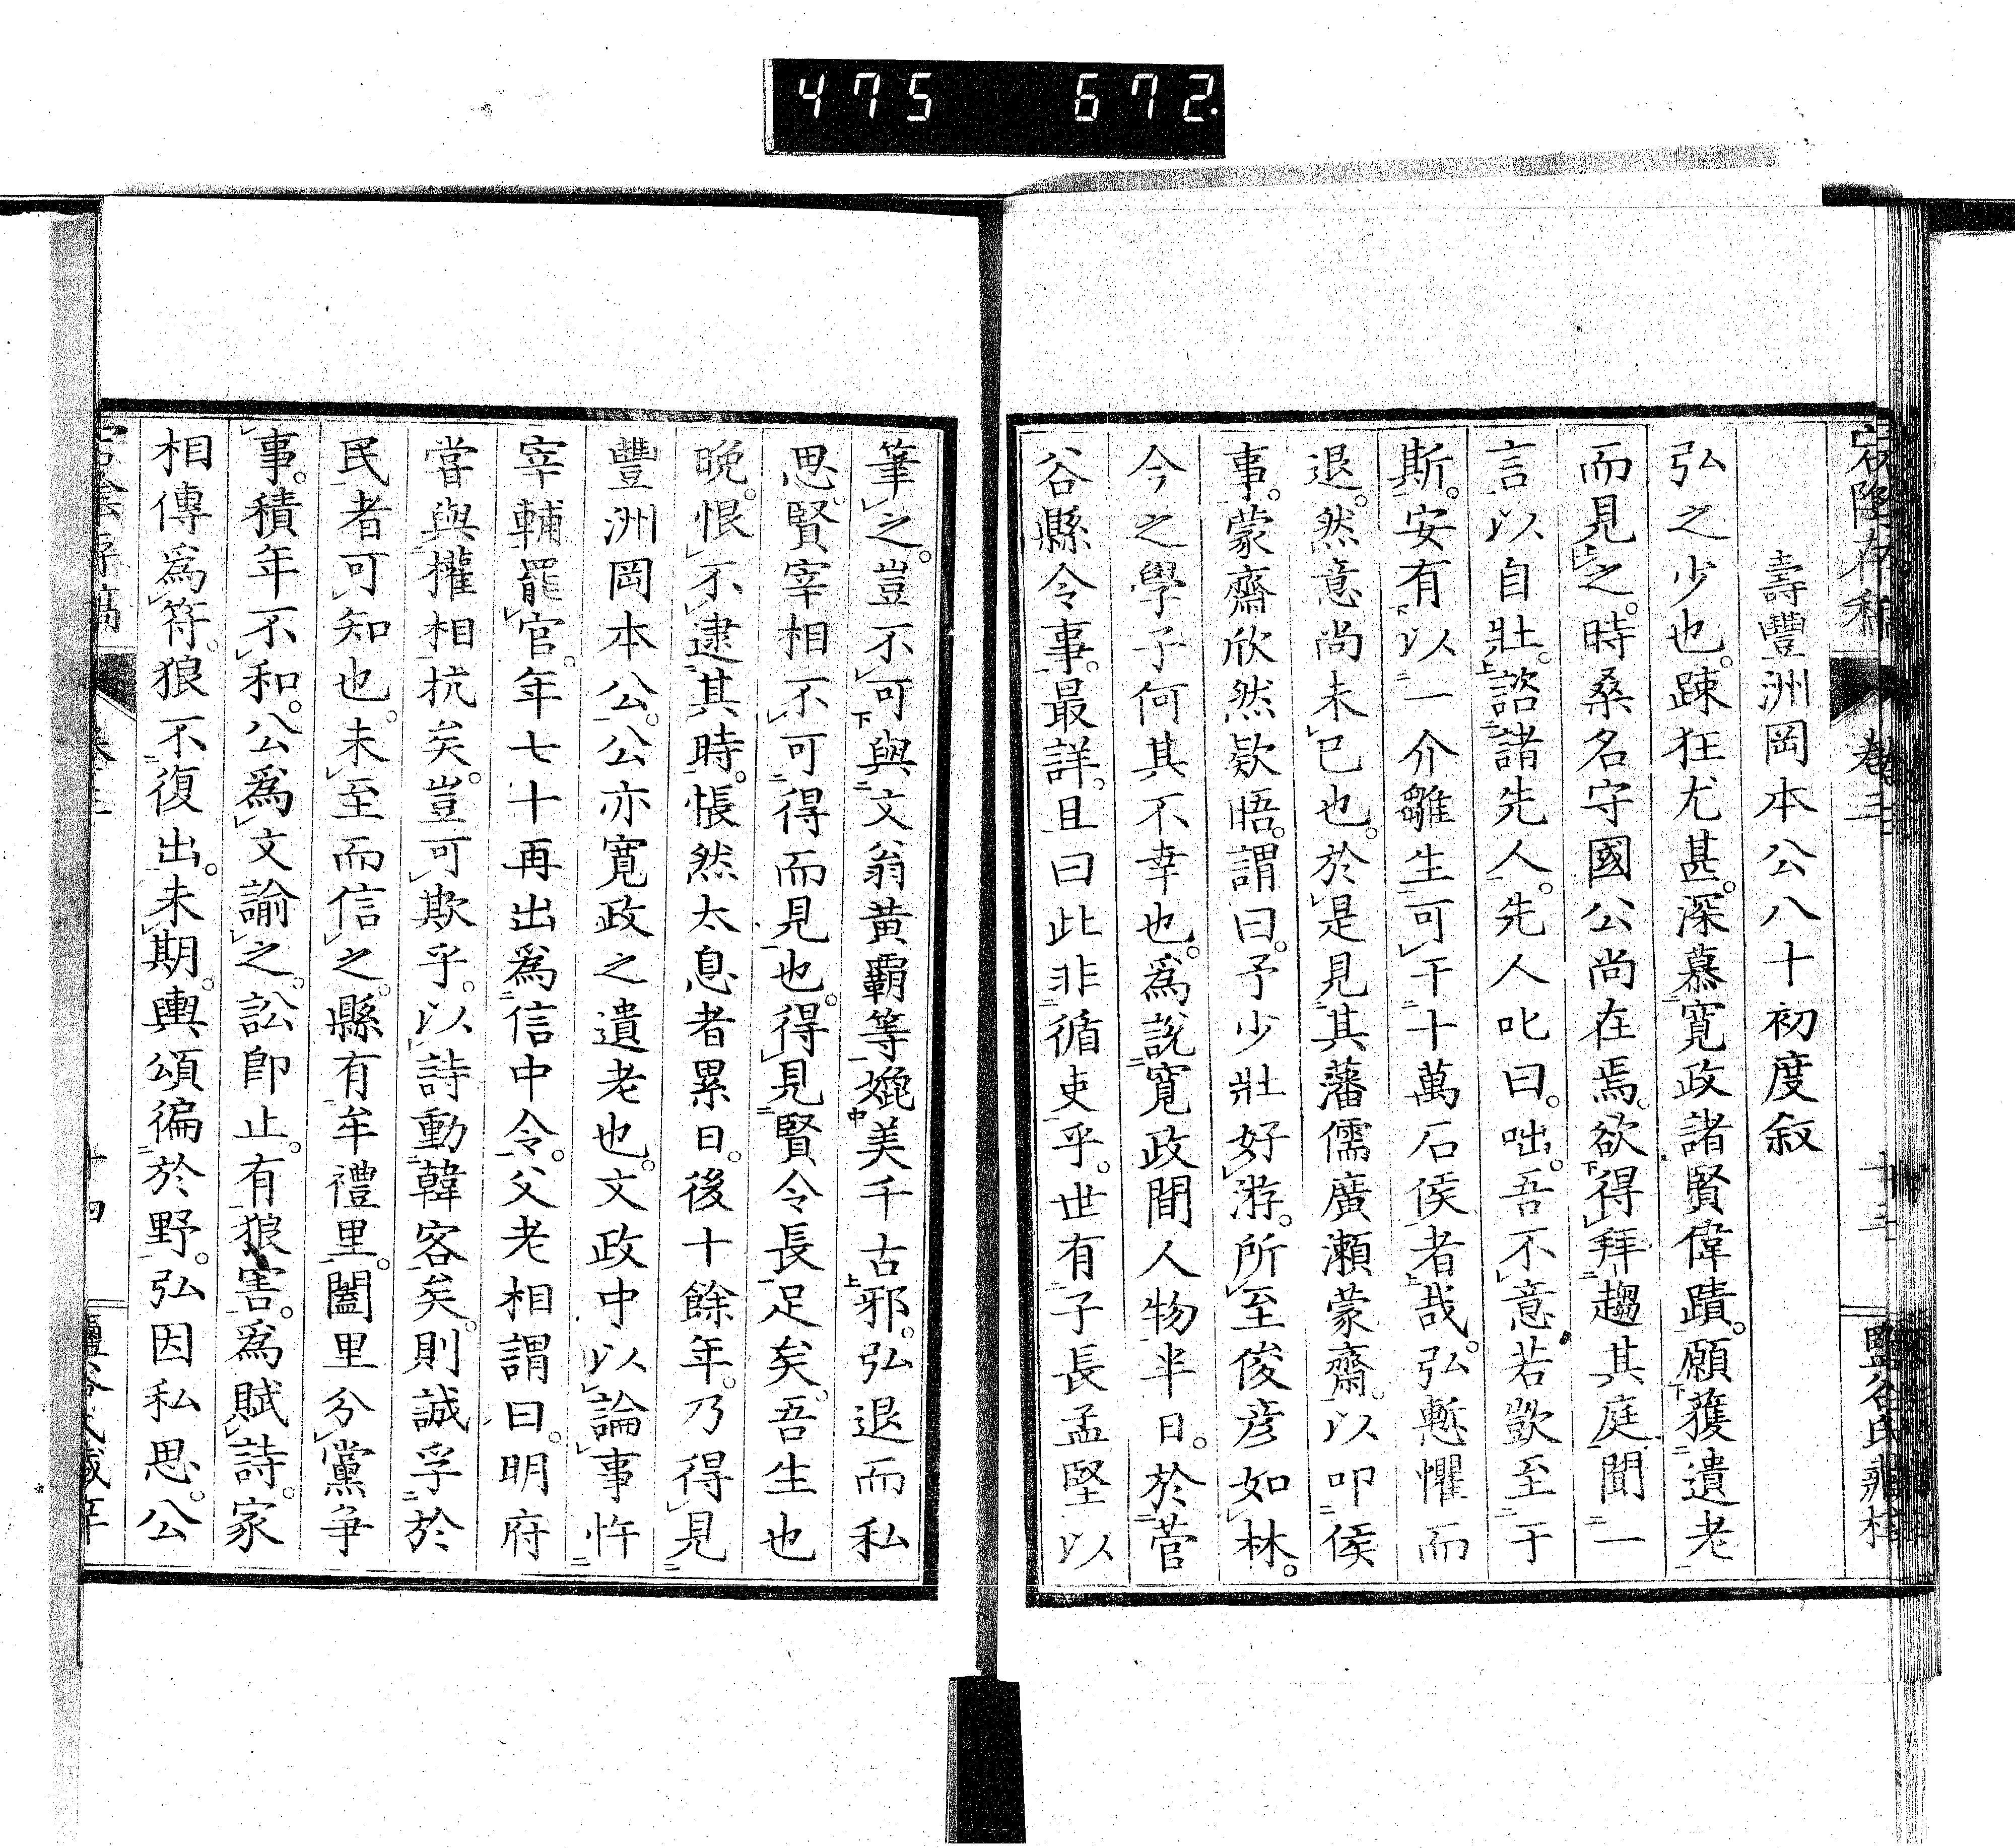 475 672.
壽豐洲岡本公八十初度叙
弘之少也。踈狂尤甚。深慕寬政諸賢偉蹟。願獲遺老
而見之。時桑名守國公尚在焉。欲得拜趨其庭聞一
言以自壯。諮諸先人。先人叱曰。咄。吾不意若歔至于
斯。安有以一介雛生可干十萬石侯者哉。弘慙懼而
退。然意尚未已也。於是見其藩儒廣瀬蒙齋。以叩侯
事。蒙齋欣然欵晤。謂曰。予少壯好游。所至俊彦如林。
今之學子何其不幸也。爲說寬政間人物半日。於菅
谷縣令事。最詳。且曰此非循吏乎。世有子長孟堅以
筆之。豈不可與文翁黄霸等媲美千古邪。弘退而私
思。賢宰相不可得而見也。得見賢令長足矣。吾生也
晩。恨不逮其時。悵然太息者累日。後十餘年。乃得見
豐洲岡本公。公亦寬政之遺老也。文政中以論事忤
宰輔罷官。年七十再出爲信中令。父老相謂曰。明府
甞與權相抗矣。豈可欺乎。以詩動韓客矣。則誠孚於
民者可知也。未至而信之。縣有牟禮里。闔里分黨爭
事。積年不和。公爲文諭之。訟卽止。有狼害。爲賦詩。家
相傳爲符。狼不復出。未期。輿頌徧於野。弘因私思。公